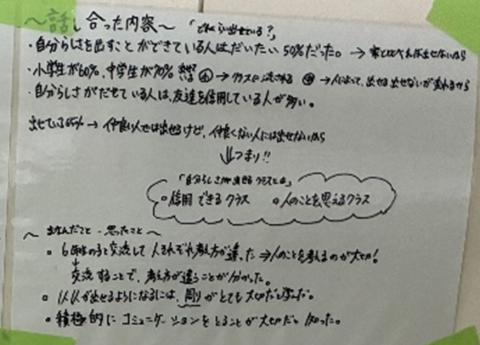 ～話し合った内容～ 「どれくらい出せている？」
・自分らしさを出すことができている人はだいたい50%だった。→家と比べれば出せないから
・小学生が60%、中学生が70% →クラスに →人によって、出せる出せないが変わるから
・自分らしさがだせている人は、友達を信用している人が多い。
出せている →仲良い人には出せるけど、仲良くない人には出せないから
⇓つまり!!
「自分らしさが出せるクラスとは」
○信用できるクラス ○人のことを思えるクラス
～学んだこと・思ったこと～
○6年生の子と交流して人それぞれ考え方が違った→人のことを考えるのが大切!
交流することで、考え方が違うことが分かった。
○ が出せるようになるには、 がとても大切だと学んだ。
○積極的にコミュニケーションをとることが大切だと知った。